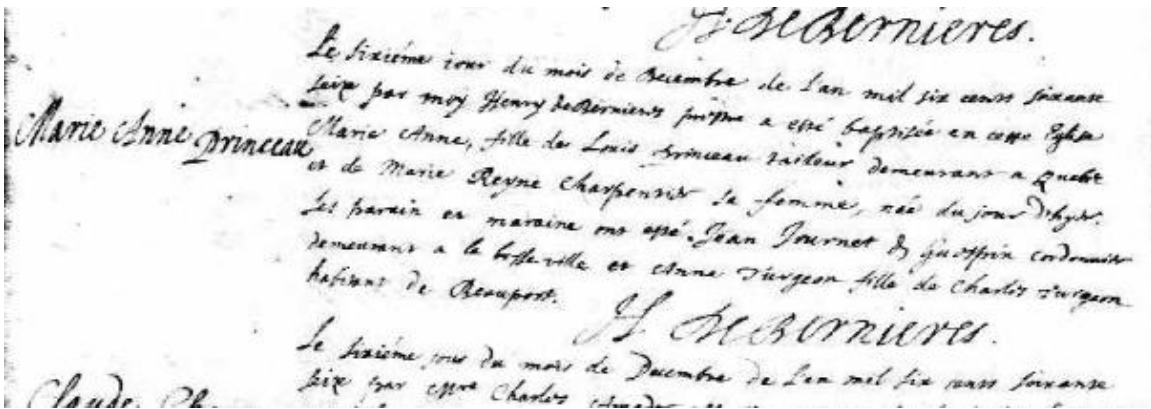 H. de Bernieres.
Le sixiéme iour du mois de Decembre de l'an mil six cents soixante
seize par moy Henry de Bernieres prestre a esté baptisée en cette Eglise
Marie Anne Princeau
Marie Anne, fille de Louis Princeau tailleur demeurant a Quebec
et de Marie Reyne Charpentier sa femme, née du jour d'hyer.
Ses parain et maraine ont esté Jean Journet cordonnier
demeurant a la basse ville et Anne Turgeon fille de Charles Turgeon
habitant de Beauport.
H. de Bernieres.
Le sixiéme jour du mois de Decembre de l'an mil six cents soixante
seize par Charles
Claude